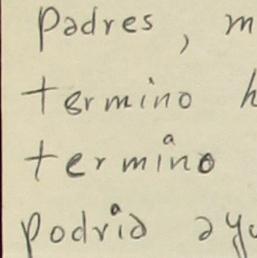 Padres, m
termino h
termino
podria ayu